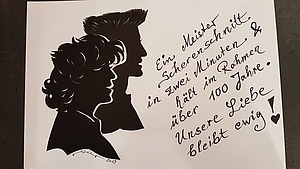 Ein Meister
Scherenschnitt
in zwei Minuten &
hält im Rahmen
über 100 Jahre.
Unsere Liebe
bleibt ewig!